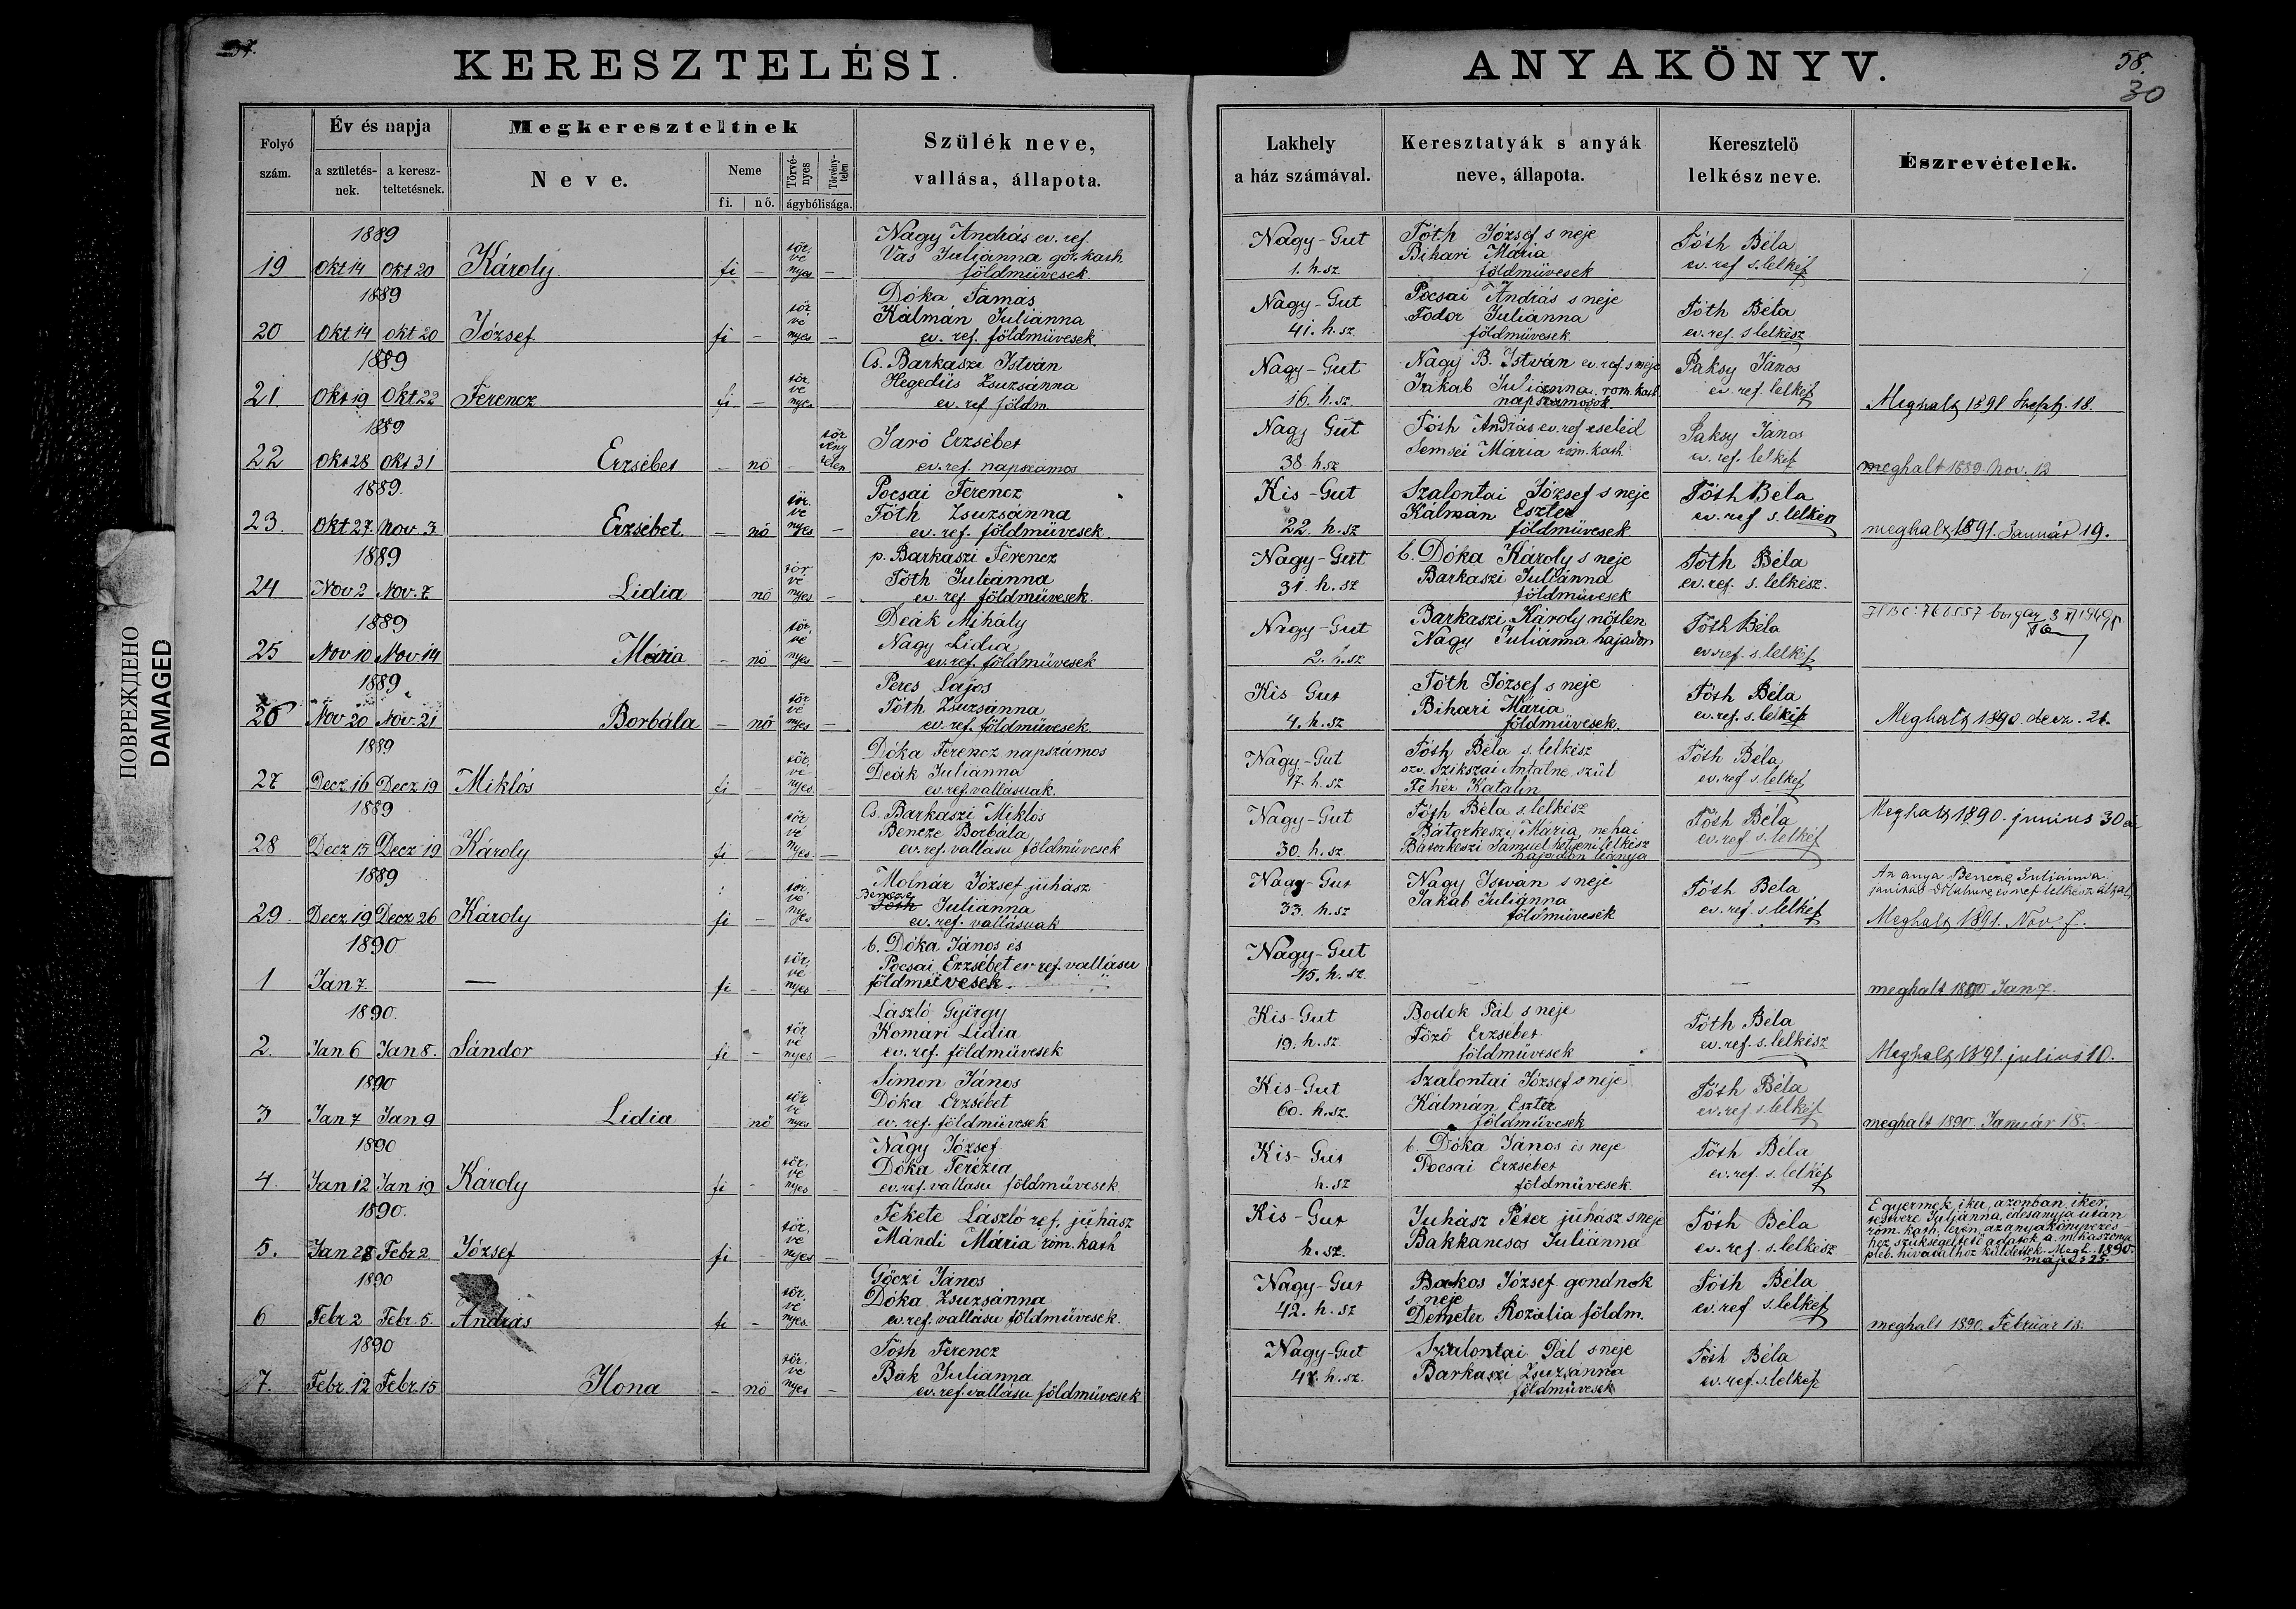 57.
KERESZTELÉSI
ANYAKÖNYV.
58.
30
Folyó szám.
Év és napja
a születés-nek.
a keresz-teltetésnek.
Megkereszteltnek
Neve.
Neme
fi.
nő.
Törvé-nyes
Törvény-telen
ágybólisága.
Szülék neve,
vallása, állapota.
Lakhely
a ház számával.
Keresztatyák s anyák
neve, állapota.
Keresztelö
lelkész neve.
Észrevételek.
ПОВРЕЖДЕНО
DAMAGED
1889
19 Okt 14 Okt 20 Károly fi - tör vé nyes -
Nagy András ev. ref.
Vas Juliánna gör. kath
földmüvesek
Nagy-Gut
1. h. sz.
Tóth József s neje
Bihari Mária
földmüvesek
Tóth Béla
ev. ref s. lelkész
1889
20 Okt 14 Okt 20 József fi - tör vé nyes -
Dóka Tamás
Kálmán Juliánna
ev. ref. földmüvesek
Nagy-Gut
41. h. sz
Pocsai András s neje
Fodor Juliánna
földmüvesek
Tóth Béla
ev. ref. s lelkész
1889
21. Okt 19 Okt 22 Ferencz fi - tör vé nyes
Cs. Barkaszi István
Hegedüs Zsuzsánna
ev. ref földm
Nagy-Gut
16. h. sz.
Nagy B. István ev. ref. s neje
Jakab Juliánna rom. kath
napszámosok.
Paksy János
ev. ref. lelkész
Meghalt 1891 Szept. 18.
1889
22 Okt 28 Okt 31 Erzsébet - nő - tör vény telen
Jaró Erzsébet
ev. ref. napszámos
Nagy Gut
38. h. sz
Tóth András ev. ref cseléd
Semsei Mária róm. kath
Paksy János
ev. ref. lelkész
meghalt 1889. Nov. 12
1889.
23. Okt 27. Nov. 3 Erzsébet. - nő tör. vé nyes -
Pocsai Ferencz
Tóth Zsuzsánna
ev. ref. földmüvesek.
Kis-Gut
22. h. sz
Szalontai József s neje
Kálmán Eszter
földmüvesek
Tóth Béla
ev. ref s. lelkész
meghalt 1891. Január 19.
1889
24 Nov 2 Nov. 7 Lidia nő tör vé nyes -
p. Barkaszi Ferencz
Tóth Juliánna
ev. ref földmüvesek.
Nagy-Gut
31. h. sz
b. Dóka Károly s neje
Barkaszi Juliánna
földmüvesek
Tóth Béla
ev. ref. s. lelkész.
1889
25 Nov 10 Nov 14 Mária - nő tör vé nyes -
Deák Mihály
Nagy Lidia
ev. ref. földmüvesek
Nagy-Gut
2. h. sz
Barkaszi Károly nőtlen
Nagy Juliánna hajadon
Tóth Béla
ev. ref. s. lelkész
1889
26 Nov 20 Nov. 21 Borbála - nő tör vé nyes -
Peres Lajos
Tóth Zsuzsánna
ev. ref. földmüvesek.
Kis Gut
4. h. sz
Tóth József s neje
Bihari Mária
földmüvesek.
Tóth Béla
ev. ref. s. lelkész
Meghalt 1890. decz. 21.
1889
27 Decz 16 Decz 19 Miklós fi - tör. vé nyes. -
Dóka Ferencz napszámos
Deák Juliánna
ev. ref. vallásuak.
Nagy-Gut
17. h. sz
Tóth Béla s. lelkész
özv. Szikszai Antalné szül
Fehér Katalin
Tóth Béla
ev. ref s. lelkész
1889
28 Decz 15 Decz 19 Károly fi - tör vé nyes -
Cs. Barkaszi Miklós
Bencze Borbála
ev. ref. vallásu földmüvesek
Nagy-Gut
30. h. sz.
Tóth Béla s. lelkész
Bátorkeszi Mária, néhai
Bátorkeszi Sámuel hetjeni lelkész
hajadon leánya
Tóth Béla
ev. ref s. lelkész
Meghalt 1890. junius 30án
1889
29. Decz 19 Decz 26 Károly fi - tör. vé nyes
Molnár József juhász
Bencze
Tóth Juliánna
ev. ref. vallásuak
Nagy-Gut
33. h. sz
Nagy István s neje
Jakab Juliánna
földmüvesek
Tóth Béla
ev. ref. s. lelkész
Az anya Bencze Juliánna.
Meghalt 1891. Nov. 7.
1890
1 Jan 7. — fi - tör. vé nyes -
b. Dóka János és
Pocsai Erzsébet ev ref. vallásu
földmüvesek.
Nagy-Gut
45. h. sz.
-
-
meghalt 1890 Jan 7.
1890.
2. Jan 6 Jan 8. Sándor fi - tör vé nyes -
László György
Komári Lidia
ev. ref. földmüvesek
Kis-Gut
19. h. sz.
Bodok Pál s neje
Tözö Erzsébet
földmüvesek
Tóth Béla
ev. ref. s. lelkész
Meghalt 1891. julius 10.
1890
3 Jan 7 Jan 9 Lidia nő tör vé nyes
Simon János
Dóka Erzsébet
ev. ref. földmüvesek
Kis-Gut
60. h. sz.
Szalontai József s neje
Kálmán Eszter
földmüvesek
Tóth Béla
ev. ref s. lelkész
meghalt 1890. Január 18.
1890
4. Jan 12 Jan 19 Károly fi - tör. vé nyes
Nagy József
Dóka Terézia
ev. ref. vallásu földmüvesek
Kis-Gut
h. sz
b. Dóka János és neje
Pocsai Erzsébet
földmüvesek.
Tóth Béla
ev. ref. s. lelkész
1890.
5. Jan 28 Febr 2 József fi - tör. vé nyes -
Fekete László ref. juhász
Mándi Mária róm. kath
Kis-Gut
h. sz.
Juhász Péter juhász s neje
Bakkancsos Juliánna
Tóth Béla
ev. ref. s. lelkész
E gyermek iker, azonban iker
testvére Juliánna édesanyja után
róm. kath. lévén az anyakönyvezés-
hez szükségeltető adatok a m. kaszonyi
pleb. hivatalhoz küldettek. Megh. 1890.
május 25.
1890
6 Febr 2 Febr. 5. András fi - tör. vé nyes.
Göczi János
Dóka Zsuzsánna
ev. ref. vallásu földmüvesek.
Nagy-Gut
42. h. sz
Bakos József gondnok
s neje
Demeter Rozália földm.
Tóth Béla
ev. ref s. lelkész
meghalt 1890. Február 18.
1890
7. Febr. 12 Febr. 15 Ilona - nő tör. vé nyes -
Tóth Ferencz
Bak Juliánna
ev. ref. vallásu földmüvesek
Nagy-Gut
47. h. sz.
Szalontai Pál s neje
Barkaszi Zsuzsánna
földmüvesek
Tóth Béla
ev. ref. s. lelkész